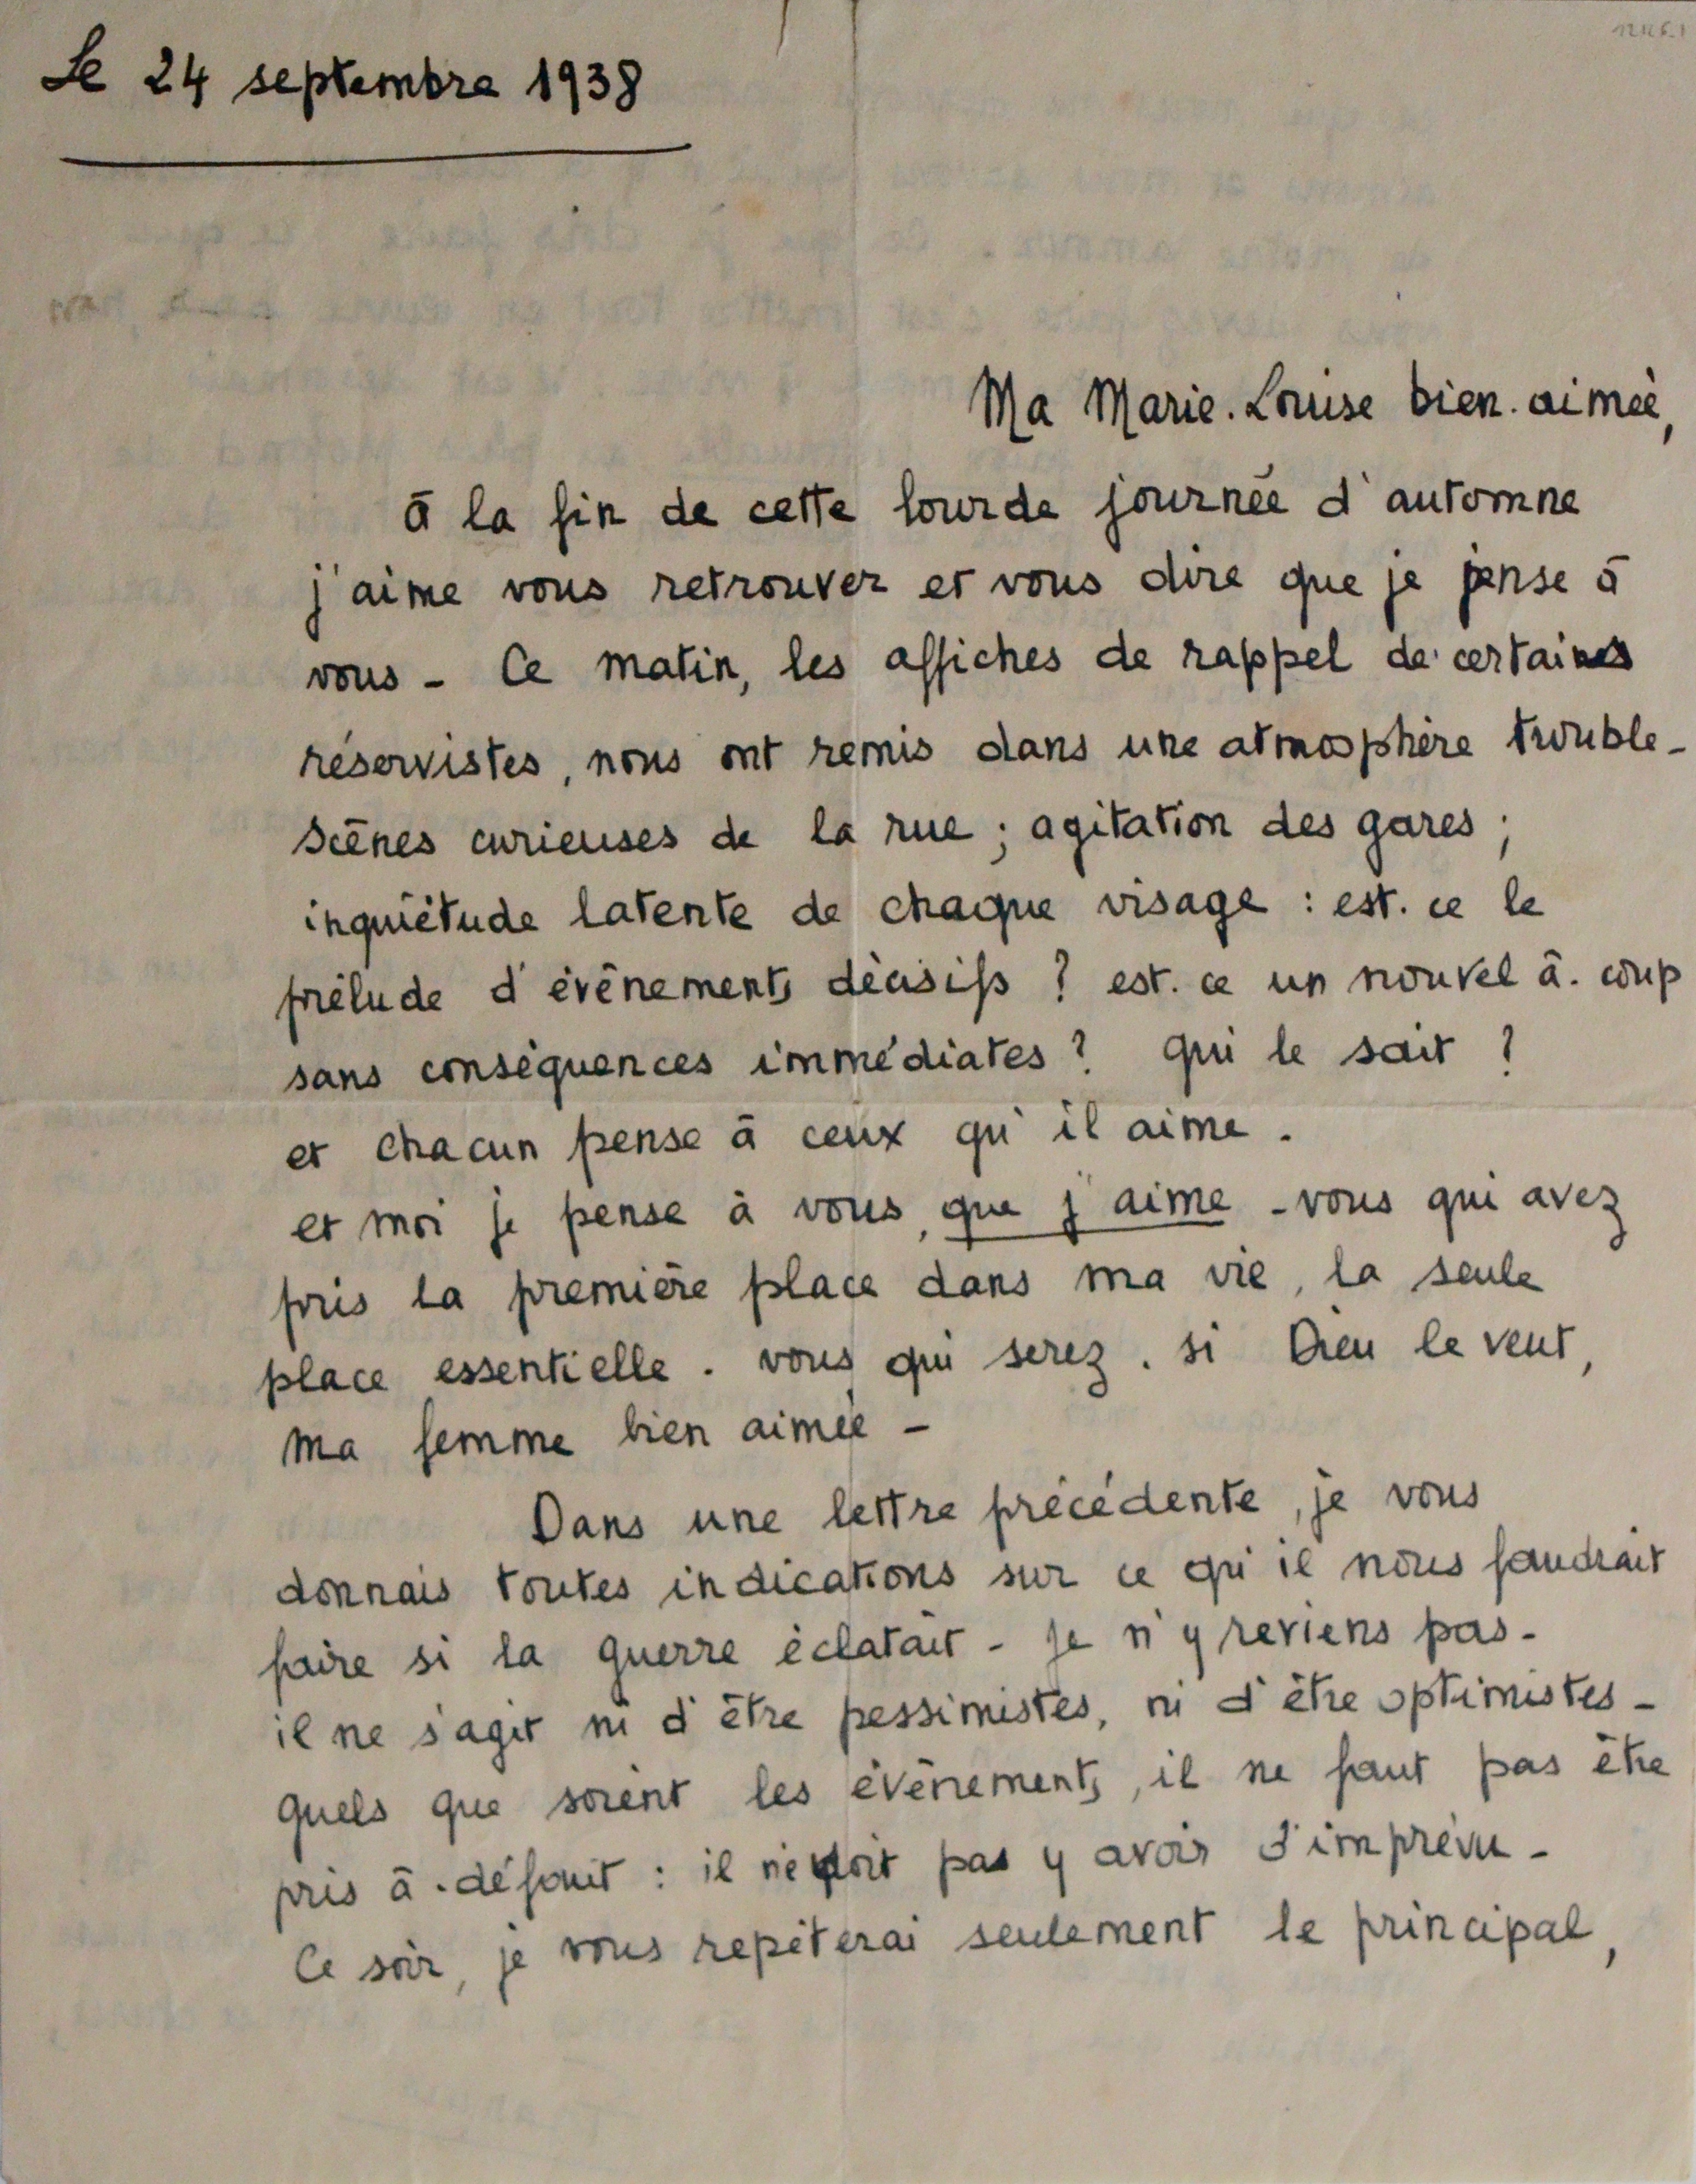 Le 24 septembre 1938
Ma Marie-Louise bien-aimée,
à la fin de cette lourde journée d'automne
j'aime vous retrouver et vous dire que je pense à
vous - Ce matin, les affiches de rappel de certains
réservistes, nous ont remis dans une atmosphère trouble -
scènes curieuses de la rue ; agitation des gares ;
inquiétude latente de chaque visage : est-ce le
prélude d'évènements décisifs ? est-ce un nouvel à-coup
sans conséquences immédiates ? qui le sait ?
et chacun pense à ceux qu'il aime .
et moi je pense à vous, que j'aime - vous qui avez
pris la première place dans ma vie, la seule
place essentielle . vous qui serez . si Dieu le veut,
ma femme bien aimée -
Dans une lettre précédente, je vous
donnais toutes indications sur ce qu'il nous faudrait
faire si la guerre éclatait - Je n'y reviens pas -
il ne s'agit ni d'être pessimistes, ni d'être optimistes -
quels que soient les évènements, il ne faut pas être
pris à-défaut : il ne doit pas y avoir d'imprévu -
Ce soir, je vous repèterai seulement le principal,